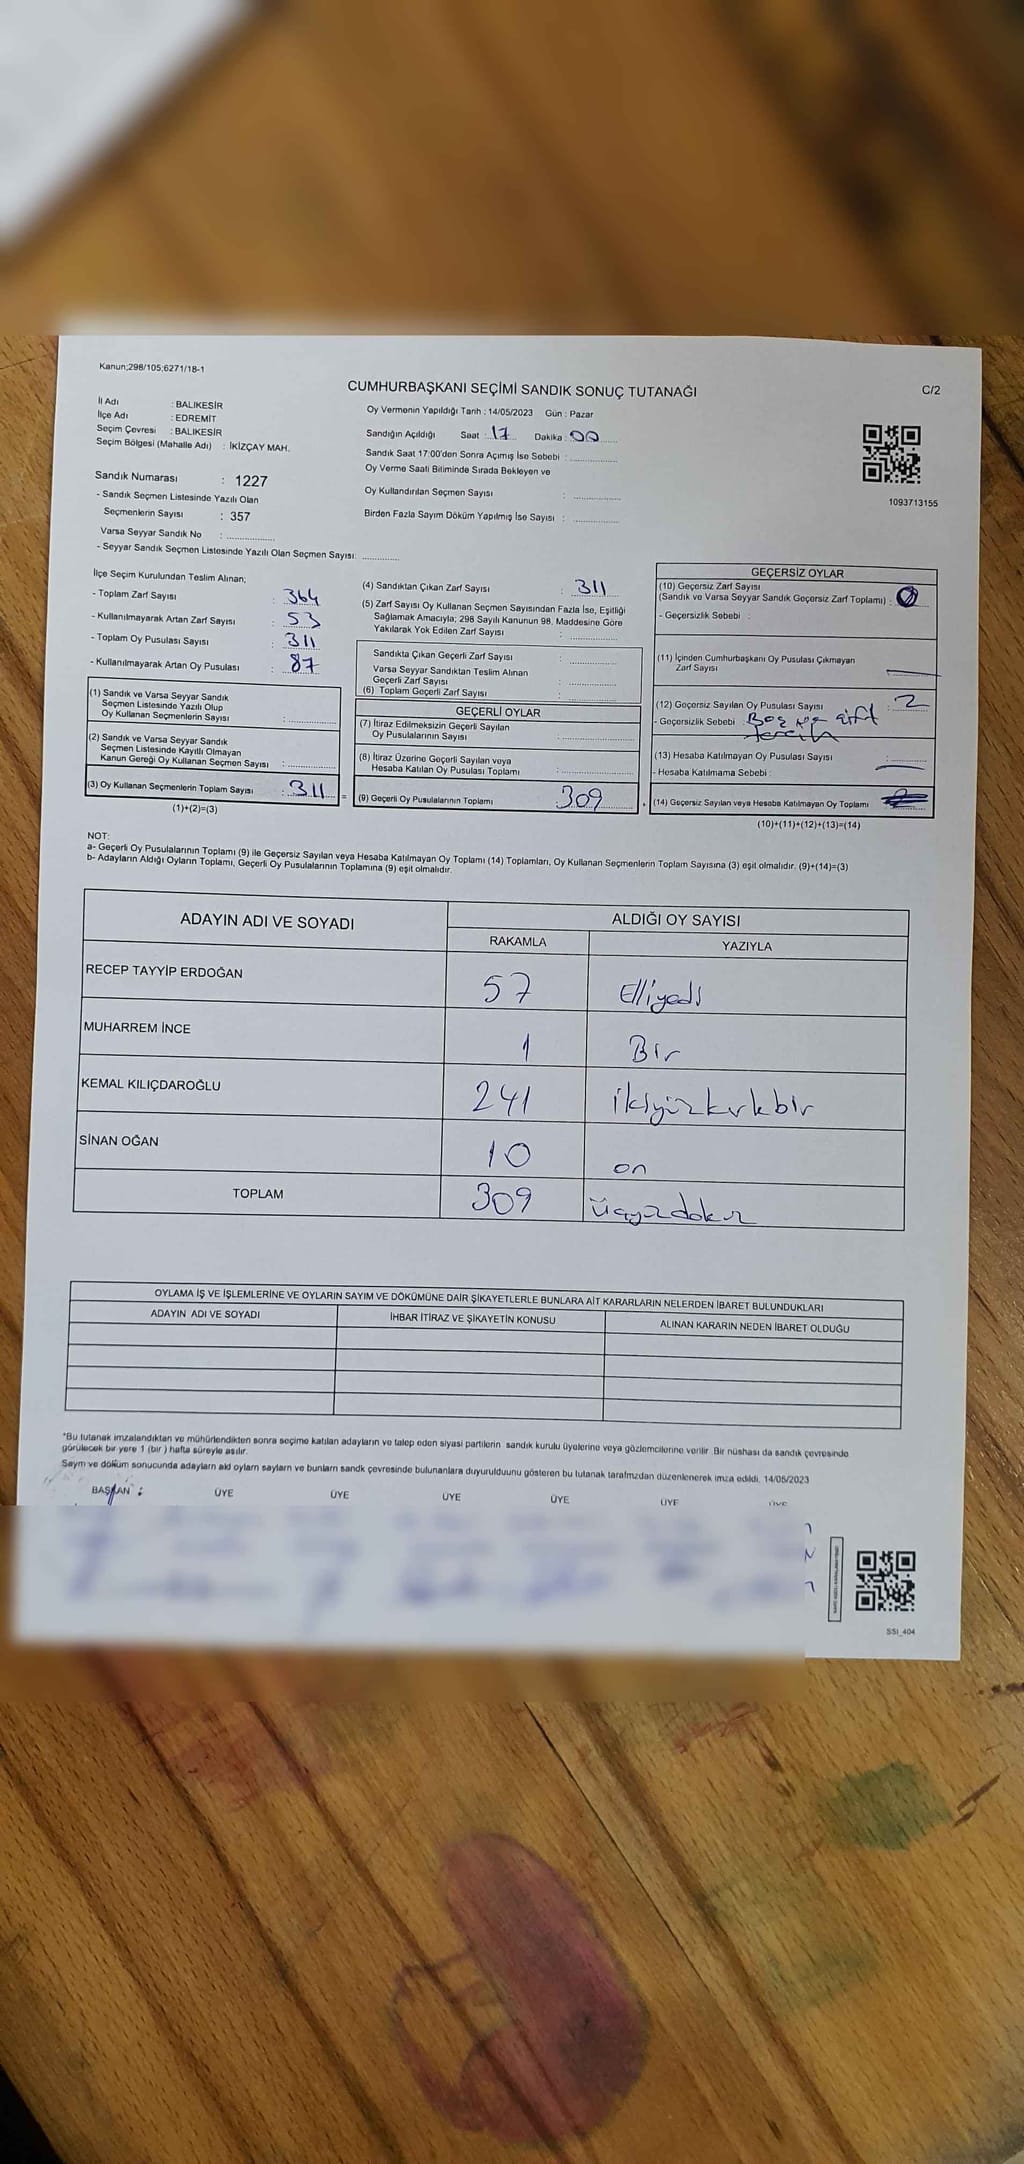 Kanun;298/105;6271/18-1
CUMHURBAŞKANI SEÇİMİ SANDIK SONUÇ TUTANAĞI
C/2
İl Adı : BALIKESİR
İlçe Adı : EDREMİT
Seçim Çevresi : BALIKESİR
Seçim Bölgesi (Mahalle Adı) : İKİZÇAY MAH.
Oy Vermenin Yapıldığı Tarih : 14/05/2023 Gün : Pazar
Sandığın Açıldığı Saat : 17 Dakika : 00
Sandık Saat 17:00'den Sonra Açımış İse Sebebi :
Oy Verme Saati Bitiminde Sırada Bekleyen ve
Oy Kullandırılan Seçmen Sayısı :
Birden Fazla Sayım Döküm Yapılmış İse Sayısı :
1093713155
Sandık Numarası : 1227
- Sandık Seçmen Listesinde Yazılı Olan
Seçmenlerin Sayısı : 357
Varsa Seyyar Sandık No :
- Seyyar Sandık Seçmen Listesinde Yazılı Olan Seçmen Sayısı:
İlçe Seçim Kurulundan Teslim Alınan;
- Toplam Zarf Sayısı : 364
- Kullanılmayarak Artan Zarf Sayısı : 53
- Toplam Oy Pusulası Sayısı : 311
- Kullanılmayarak Artan Oy Pusulası : 87
(1) Sandık ve Varsa Seyyar Sandık
Seçmen Listesinde Yazılı Olup
Oy Kullanan Seçmenlerin Sayısı :
(2) Sandık ve Varsa Seyyar Sandık
Seçmen Listesinde Kayıtlı Olmayan
Kanun Gereği Oy Kullanan Seçmen Sayısı :
(3) Oy Kullanan Seçmenlerin Toplam Sayısı : 311
(1)+(2)=(3)
=
(4) Sandıktan Çıkan Zarf Sayısı : 311
(5) Zarf Sayısı Oy Kullanan Seçmen Sayısından Fazla İse, Eşitliği
Sağlamak Amacıyla; 298 Sayılı Kanunun 98. Maddesine Göre
Yakılarak Yok Edilen Zarf Sayısı :
Sandıkta Çıkan Geçerli Zarf Sayısı :
Varsa Seyyar Sandıktan Teslim Alınan
Geçerli Zarf Sayısı :
(6) Toplam Geçerli Zarf Sayısı :
GEÇERLİ OYLAR
(7) İtiraz Edilmeksizin Geçerli Sayılan
Oy Pusulalarının Sayısı :
(8) İtiraz Üzerine Geçerli Sayılan veya
Hesaba Katılan Oy Pusulası Toplamı :
(9) Geçerli Oy Pusulalarının Toplamı 309
+
GEÇERSİZ OYLAR
(10) Geçersiz Zarf Sayısı
(Sandık ve Varsa Seyyar Sandık Geçersiz Zarf Toplamı) : 0
- Geçersizlik Sebebi :
(11) İçinden Cumhurbaşkanı Oy Pusulası Çıkmayan
Zarf Sayısı
(12) Geçersiz Sayılan Oy Pusulası Sayısı : 2
- Geçersizlik Sebebi : Boş ve çift
tercih
(13) Hesaba Katılmayan Oy Pusulası Sayısı :
- Hesaba Katılmama Sebebi :
(14) Geçersiz Sayılan veya Hesaba Katılmayan Oy Toplamı
(10)+(11)+(12)+(13)=(14)
NOT:
a- Geçerli Oy Pusulalarının Toplamı (9) ile Geçersiz Sayılan veya Hesaba Katılmayan Oy Toplamı (14) Toplamları, Oy Kullanan Seçmenlerin Toplam Sayısına (3) eşit olmalıdır. (9)+(14)=(3)
b- Adayların Aldığı Oyların Toplamı, Geçerli Oy Pusulalarının Toplamına (9) eşit olmalıdır.
ADAYIN ADI VE SOYADI
ALDIĞI OY SAYISI
RAKAMLA YAZIYLA
RECEP TAYYİP ERDOĞAN 57 Elliyedi
MUHARREM İNCE 1 Bir
KEMAL KILIÇDAROĞLU 241 ikiyüzkırkbir
SİNAN OĞAN 10 on
TOPLAM 309 üçyüzdokuz
OYLAMA İŞ VE İŞLEMLERİNE VE OYLARIN SAYIM VE DÖKÜMÜNE DAİR ŞİKAYETLERLE BUNLARA AİT KARARLARIN NELERDEN İBARET BULUNDUKLARI
ADAYIN ADI VE SOYADI İHBAR İTİRAZ VE ŞİKAYETİN KONUSU ALINAN KARARIN NEDEN İBARET OLDUĞU
*Bu tutanak imzalandıktan ve mühürlendikten sonra seçime katılan adayların ve talep eden siyasi partilerin sandık kurulu üyelerine veya gözlemcilerine verilir. Bir nüshası da sandık çevresinde
görülecek bir yere 1 (bir ) hafta süreyle asılır.
Sayım ve döküm sonucunda adayların ald oyların sayıları ve bunların sandk çevresinde bulunanlara duyurulduunu gösteren bu tutanak tarafmzdan düzenlenerek imza edildi. 14/05/2023
BAŞKAN ÜYE ÜYE ÜYE ÜYE ÜYE ÜYE
SSI_404